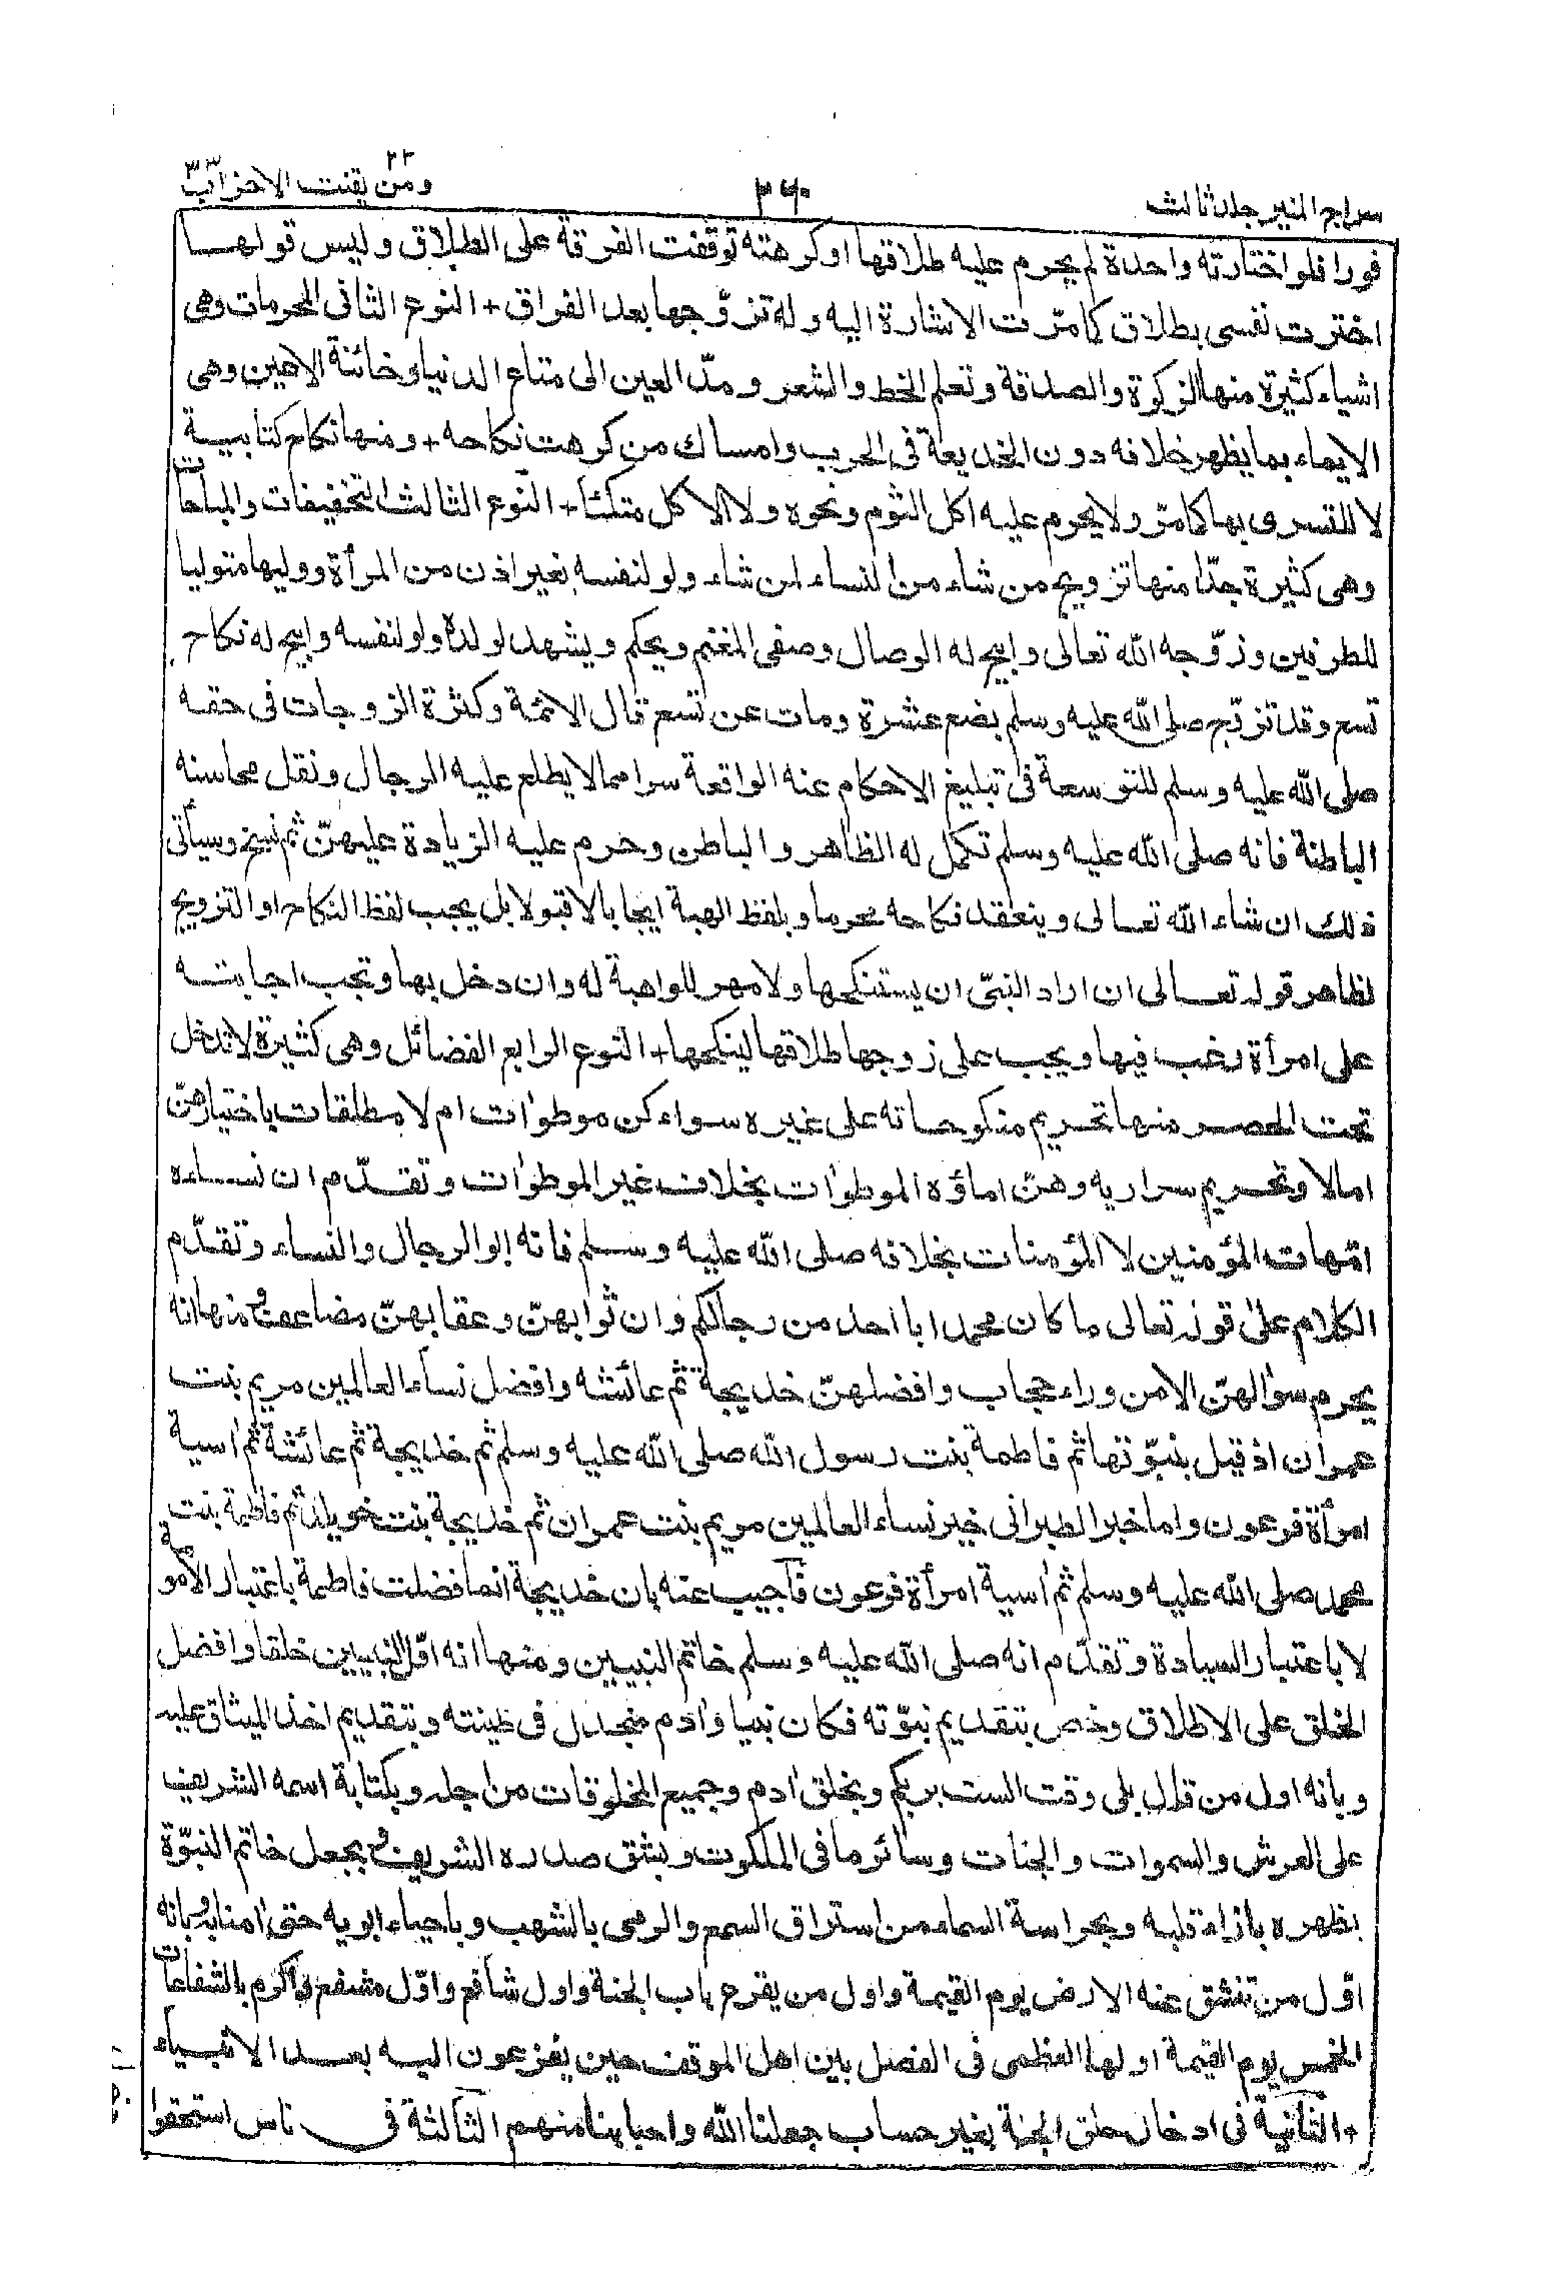 سراج المنير جلد ثالث
٣٦٠
ومن يقنت ٢٢ الاحزاب ٣٣
فورا فلو اختارته واحدة لم يحرم عليه طلاقها او كرهته توقفت الفرقة على الطلاق وليس قولها
اخترت نفسى بطلاق كما مرّت الاشارة اليه وله تزوّجها بعد الفراق + النوع الثانى المحرمات وهى
اشياء كثيرة منها الزكوة والصدقة وتعلم الخط والشعر ومدّ العين الى متاع الدنيا وخائنة الاعين وهى
الايماء بما يظهر خلافه دون الخديعة فى الحرب وامساك من كرهت نكاحه + ومنها نكاح كتابية
لا للتسرى بها كما مرّ ولا يحرم عليه اكل الثوم ونحوه ولا الاكل متكئا + النوع الثالث التخفيفات والمباحات
وهى كثيرة جدّا منها تزويج من شاء من النساء لمن شاء ولو لنفسه بغير اذن من المرأة ووليها متوليا
للطرفين وزوّجه الله تعالى وابيح له الوصال وصفى المغنم ويحكم ويشهد لولده ولو لنفسه وابيح له نكاح
تسع وقد تزوّج صلى الله عليه وسلم بضع عشرة ومات عن تسع قال الائمة وكثرة الزوجات فى حقه
صلى الله عليه وسلم للتوسعة فى تبليغ الاحكام عنه الواقعة سرا مما لا يطلع عليه الرجال ونقل محاسنه
الباطنة فانه صلى الله عليه وسلم تكمل له الظاهر والباطن وحرم عليه الزيادة عليهنّ ثم نسخ وسيأتى
ذلك ان شاء الله تعالى وينعقد نكاحه محرما وبلفظ الهبة ايجابا لا قبولا بل يجب لفظ النكاح او التزويج
لظاهر قوله تعالى ان اراد النبىّ ان يستنكحها ولا مهر للواهبة له وان دخل بها وتجب اجابته
على امرأة رغب فيها ويجب على زوجها طلاقها لينكحها + النوع الرابع الفضائل وهى كثيرة لا تدخل
تحت الحصر منها تحريم منكوحاته على غيره سواء كن موطوٰات ام لا مطلقات باختيارهنّ
ام لا وتحريم سراريه وهنّ اماؤه الموطوٰات بخلاف غير الموطوٰات وتقدّم ان نساءه
امّهات المؤمنين لا المؤمنات بخلافه صلى الله عليه وسلم فانه ابو الرجال والنساء وتقدّم
الكلام على قوله تعالى ما كان محمد ابا احد من رجالكم وان ثوابهنّ وعقابهنّ مضاعف ومنها انه
يحرم سوٰالهنّ الا من وراء حجاب وافضلهنّ خديجة ثم عائشه وافضل نساء العالمين مريم بنت
عمران اذ قيل بنبوّتها ثم فاطمة بنت رسول الله صلى الله عليه وسلم ثم خديجة ثم عائشة ثم اٰسية
امرأة فرعون واما خبر الطبرانى خير نساء العالمين مريم بنت عمران ثم خديجة بنت خويلد ثم فاطمة بنت
محمد صلى الله عليه وسلم ثم اٰسية امرأة فرعون فأجيب عنه بان خديجة انما فضلت فاطمة باعتبار الأمومة
لا باعتبار السيادة وتقدّم انه صلى الله عليه وسلم خاتم النبيين ومنها انه اوّل النبيين خلقا وافضل
الخلق على الاطلاق وخص بتقديم نبوّته فكان نبيا واٰدم منجدل فى طينته وبتقديم اخذ الميثاق عليه
وبانه اول من قال بلى وقت الست بربكم وبخلق اٰدم وجميع المخلوقات من اجله وبكتابة اسمه الشريف
على العرش والسموات والجنات وسائر ما فى الملكوت وبشق صدره الشريف وبجعل خاتم النبوّة
بظهره بازاء قلبه وبحراسة السماء من استراق السمع والرمى بالشهب وباحياء ابويه حتى اٰمنا به وبانه
اوّل من تنشق عنه الارض يوم القيمة واول من يقرع باب الجنة واول شافع واوّل مشفع واكرم بالشفاعات
الخمس يوم القيمة اولها العظمى فى الفصل بين اهل الموقف حين يفزعون اليه بعد الانبياء
+ الثانية فى ادخال خلق الجنة بغير حساب جعلنا الله واحبابنا منهم الثالثة فى ناس استحقوا